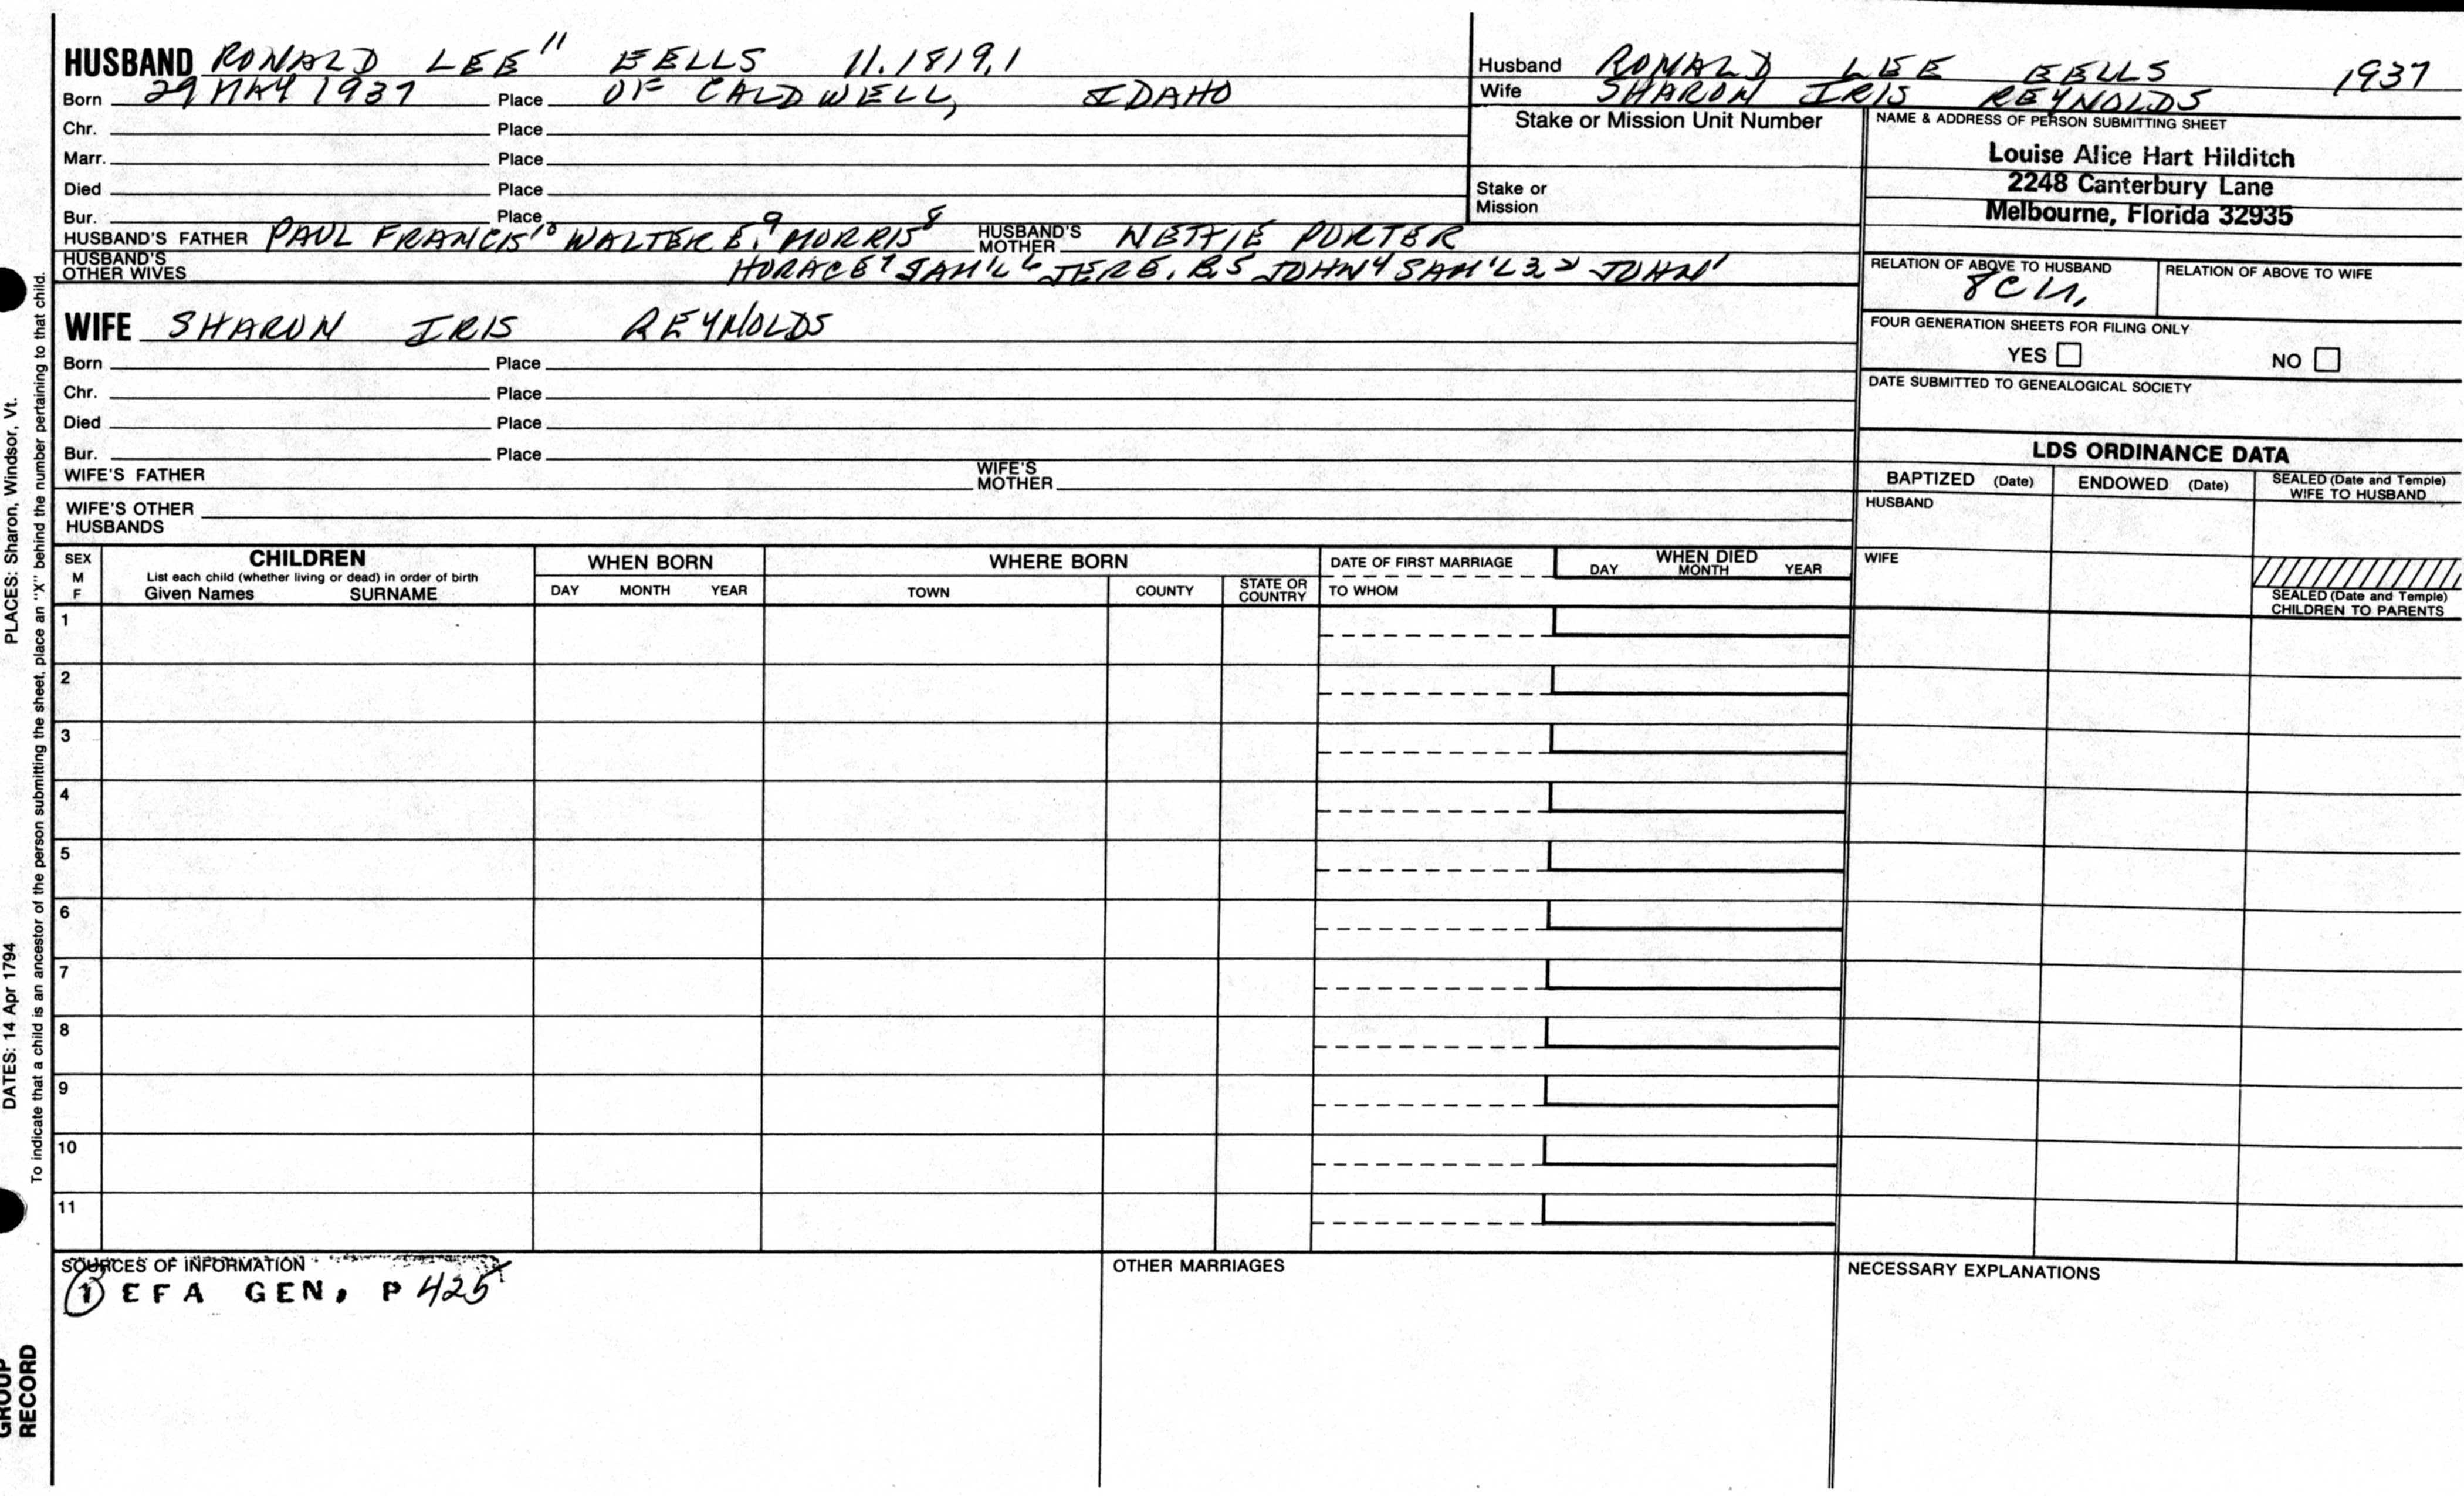 HUSBAND RONALD LEE 11 EELLS 11.1819.1
Born 29 MAY 1937 Place OF CALDWELL, IDAHO
Chr. Place
Marr. Place
Died Place
Bur. Place
HUSBAND'S FATHER PAUL FRANCIS 10 WALTER E. 9 MORRIS 8 HUSBAND'S MOTHER NETTIE PORTER
HUSBAND'S OTHER WIVES HORACE 7 SAM'L 6 JERE. B 5 JOHN 4 SAM'L 3 2 JOHN 1
Husband RONALD LEE EELLS 1937
Wife SHARON IRIS REYNOLDS
Stake or Mission Unit Number
Stake or Mission
NAME & ADDRESS OF PERSON SUBMITTING SHEET
Louise Alice Hart Hilditch
2248 Canterbury Lane
Melbourne, Florida 32935
RELATION OF ABOVE TO HUSBAND RELATION OF ABOVE TO WIFE
FOUR GENERATION SHEETS FOR FILING ONLY
YES NO
DATE SUBMITTED TO GENEALOGICAL SOCIETY
WIFE SHARON IRIS REYNOLDS
Born Place
Chr. Place
Died Place
Bur. Place
WIFE'S FATHER WIFE'S MOTHER
WIFE'S OTHER HUSBANDS
LDS ORDINANCE DATA
BAPTIZED (Date) ENDOWED (Date) SEALED (Date and Temple) WIFE TO HUSBAND
HUSBAND
WIFE
SEALED (Date and Temple) CHILDREN TO PARENTS
SEX M F
CHILDREN
List each child (whether living or dead) in order of birth
Given Names SURNAME
WHEN BORN
DAY MONTH YEAR
WHERE BORN
TOWN COUNTY STATE OR COUNTRY
DATE OF FIRST MARRIAGE
TO WHOM
WHEN DIED
DAY MONTH YEAR
1
2
3
4
5
6
7
8
9
10
11
SOURCES OF INFORMATION
1 EFA GEN, P 425
OTHER MARRIAGES
NECESSARY EXPLANATIONS
PLACES: Sharon, Windsor, Vt.
DATES: 14 Apr 1794
To indicate that a child is an ancestor of the person submitting the sheet, place an "X" behind the number pertaining to that child.
GROUP
RECORD